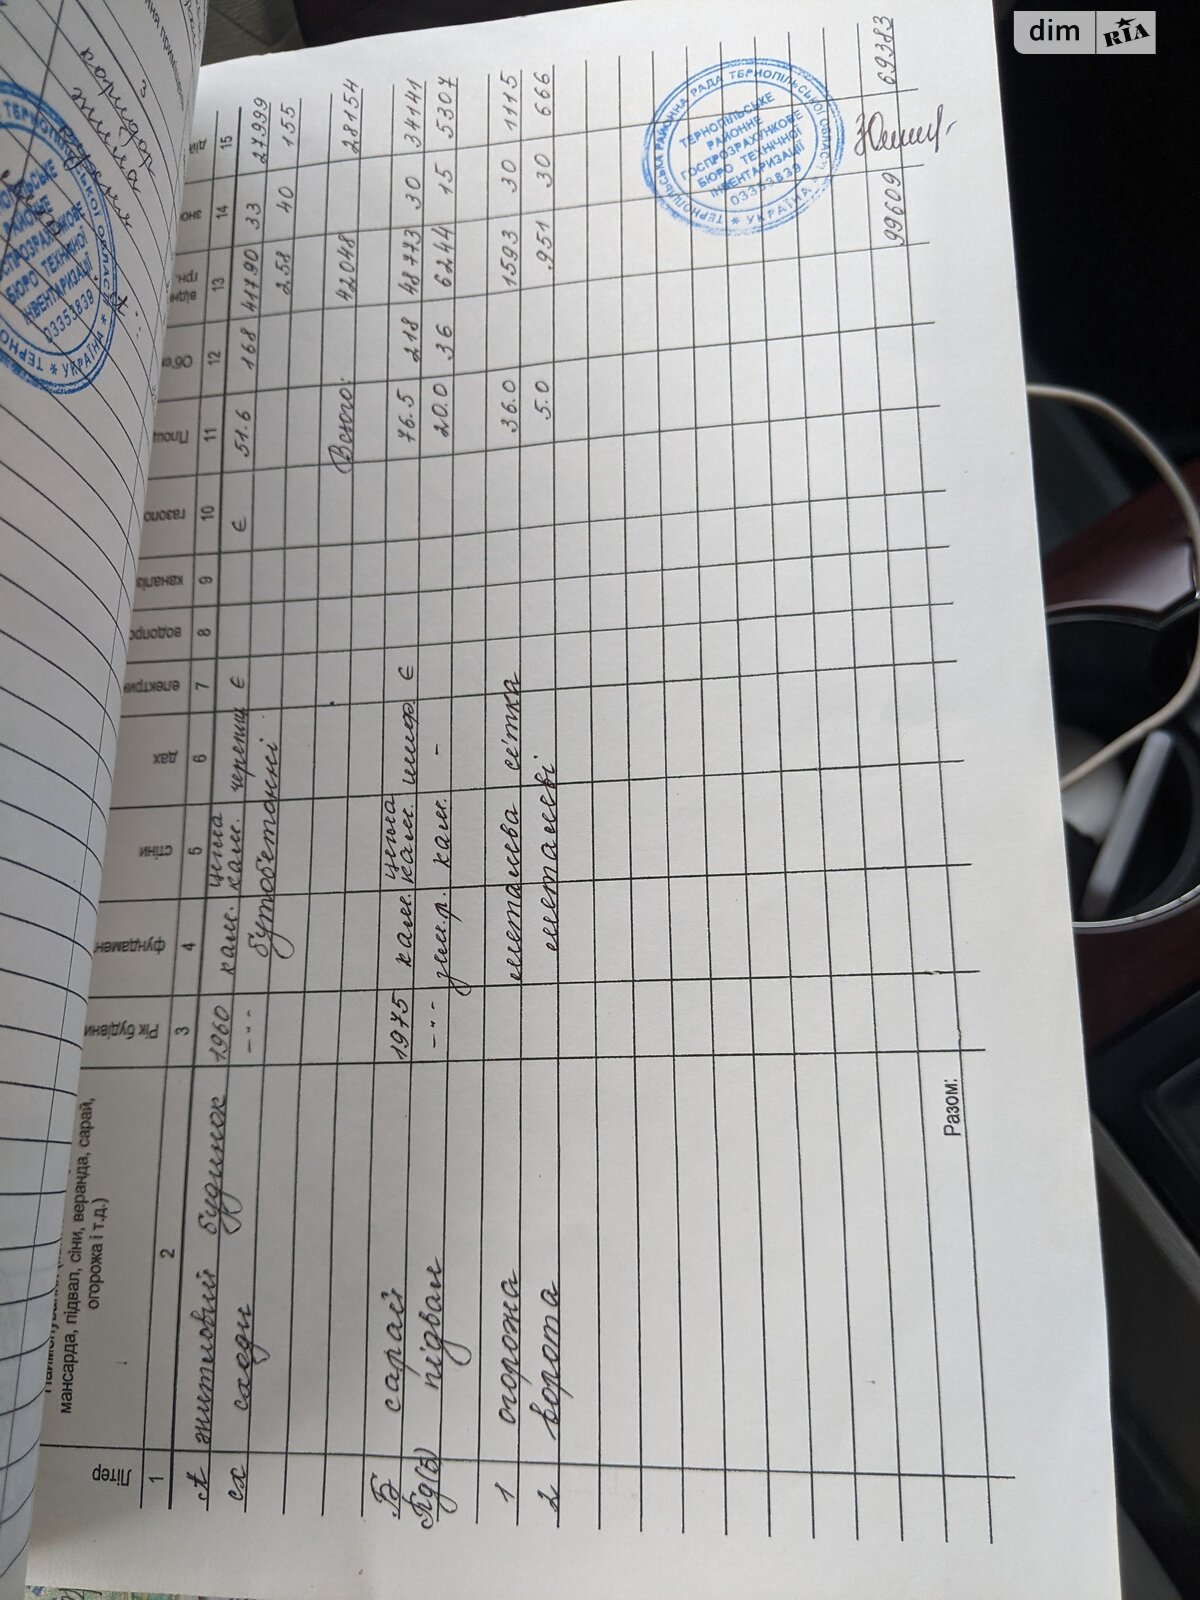 dim RIA
мансарда, підвал, сіни, веранда, сарай,
огорожа і т.д.)
Літер
Рік будівни
фундамен
стіни
дах
електрик
водопро
каналіз
газопо
Площ
Об'є
відн
грн.
знос
дій
1 2 3 4 5 6 7 8 9 10 11 12 13 14 15
А житловий будинок 1960 кам. цегла кам. черепиц є є 51.6 168 41790 33 27999
сх сходи -"- бутобетонні 258 40 155
Всього: 42048 28154
Б сарай 1975 кам. цегла кам. шифр є 76.5 218 48773 30 34141
Пд(Б) підвал -"- зал.р. кам. - 20.0 36 6244 15 5307
1 огорожа металева сітка 36.0 1593 30 1115
2 ворота металеві 5.0 951 30 666
Разом: 99609 69383
ТЕРНОПІЛЬСЬКА РАЙОННА РАДА ТЕРНОПІЛЬСЬКОЇ ОБЛАСТІ
* УКРАЇНА *
ТЕРНОПІЛЬСЬКЕ
РАЙОННЕ
ГОСПРОЗРАХУНКОВЕ
БЮРО ТЕХНІЧНОЇ
ІНВЕНТАРИЗАЦІЇ
03353839
3
коридор
житла
РАЙОННЕ
БЮРО ТЕХНІЧНОЇ
ІНВЕНТАРИЗАЦІЇ
03353839
* УКРАЇНА *